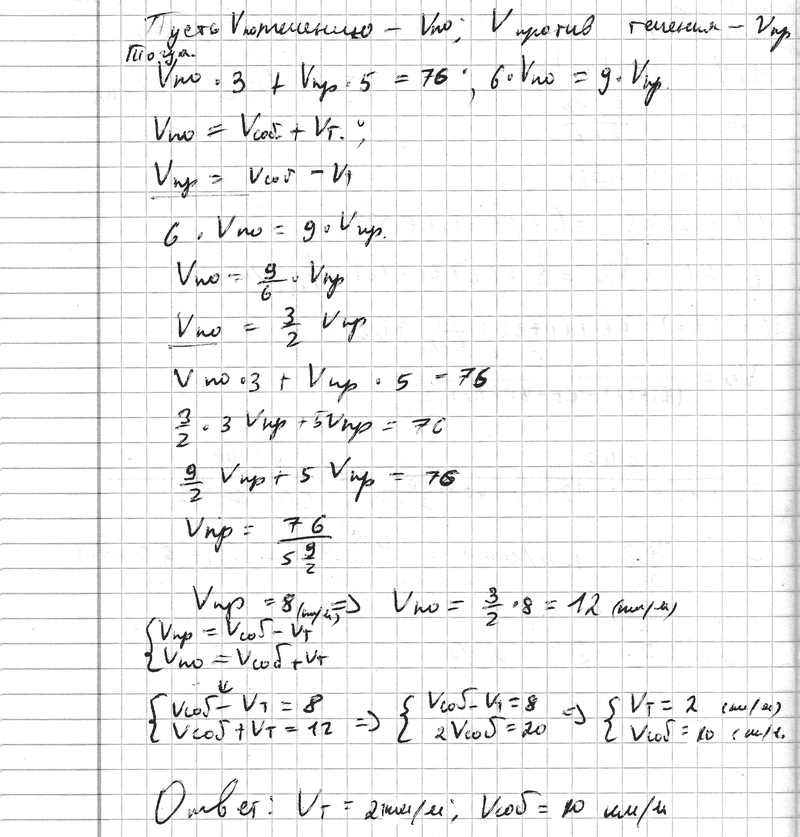 Пусть Vпо течению - Vпо; V против течения - Vпр
Тогда
Vпо · 3 + Vпр · 5 = 76 ; 6 · Vпо = 9 · Vпр.
Vпо = Vсоб + Vт. ;
Vпр = Vсоб - Vт
6 · Vпо = 9 · Vпр.
Vпо = 9/6 · Vпр
Vпо = 3/2 Vпр
Vпо · 3 + Vпр · 5 = 76
3/2 · 3 Vпр + 5Vпр = 76
9/2 Vпр + 5 Vпр = 76
Vпр = 76 / 5 9/2
Vпр = 8 (км/ч) => Vпо = 3/2 · 8 = 12 (км/ч)
{ Vпр = Vсоб - Vт
{ Vпо = Vсоб + Vт
{ Vсоб - Vт = 8 => { Vсоб - Vт = 8 => { Vт = 2 (км/ч)
{ Vсоб + Vт = 12 { 2Vсоб = 20 { Vсоб = 10 (км/ч.
Ответ: Vт = 2 км/ч; Vсоб = 10 км/ч